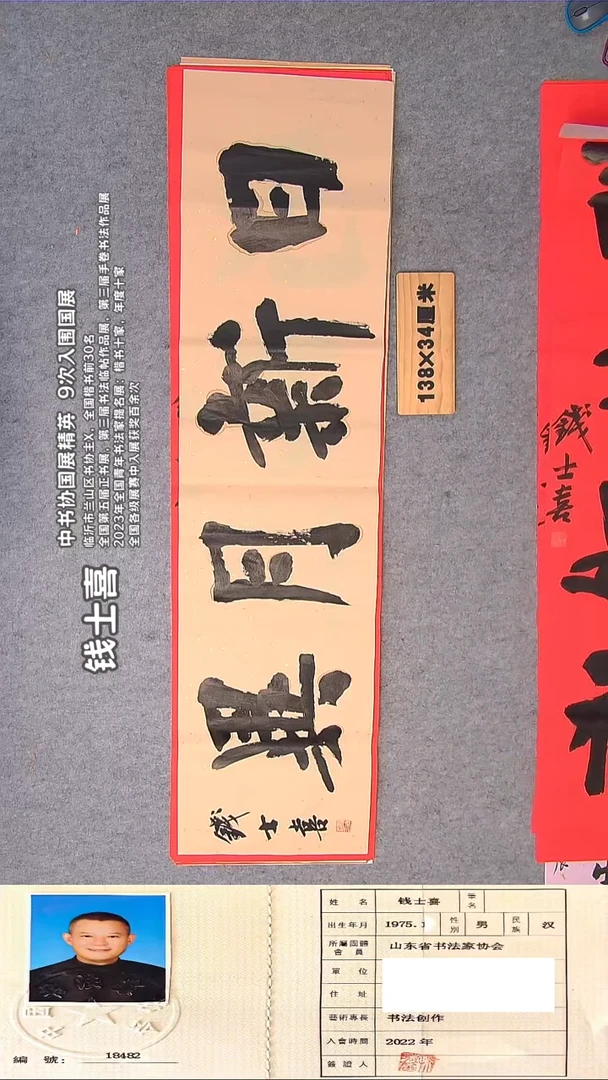 钱士喜
中书协国展精英 9次入围国展
临沂市兰山区书协主X、全国楷书前30名
全国第五届正书展、第三届书法临帖作品展、第三届手卷书法作品展
2023年全国青年书法家提名展：楷书十家、年度十家
全国各级展赛中入展获奖百余次
日新月異
錢士喜
138×34厘米
錢士喜
姓 名 钱士喜 筆名
出生年月 1975. 性別 男 民族 汉
所屬團體會員 山东省书法家协会
單 位
住 址
藝術專長 书法创作
入會時間 2022年
簽證人
編 號： 18482